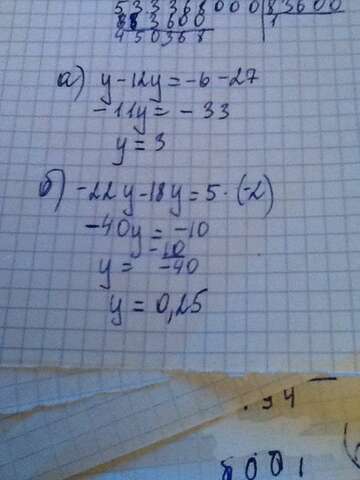 533368000 | 83600
4 5 0 3 6 8
а) y-12y=-6-27
-11y=-33
y=3
б) -22y-18y=5·(-2)
-40y=-10
y=-10/-40
y=0,25